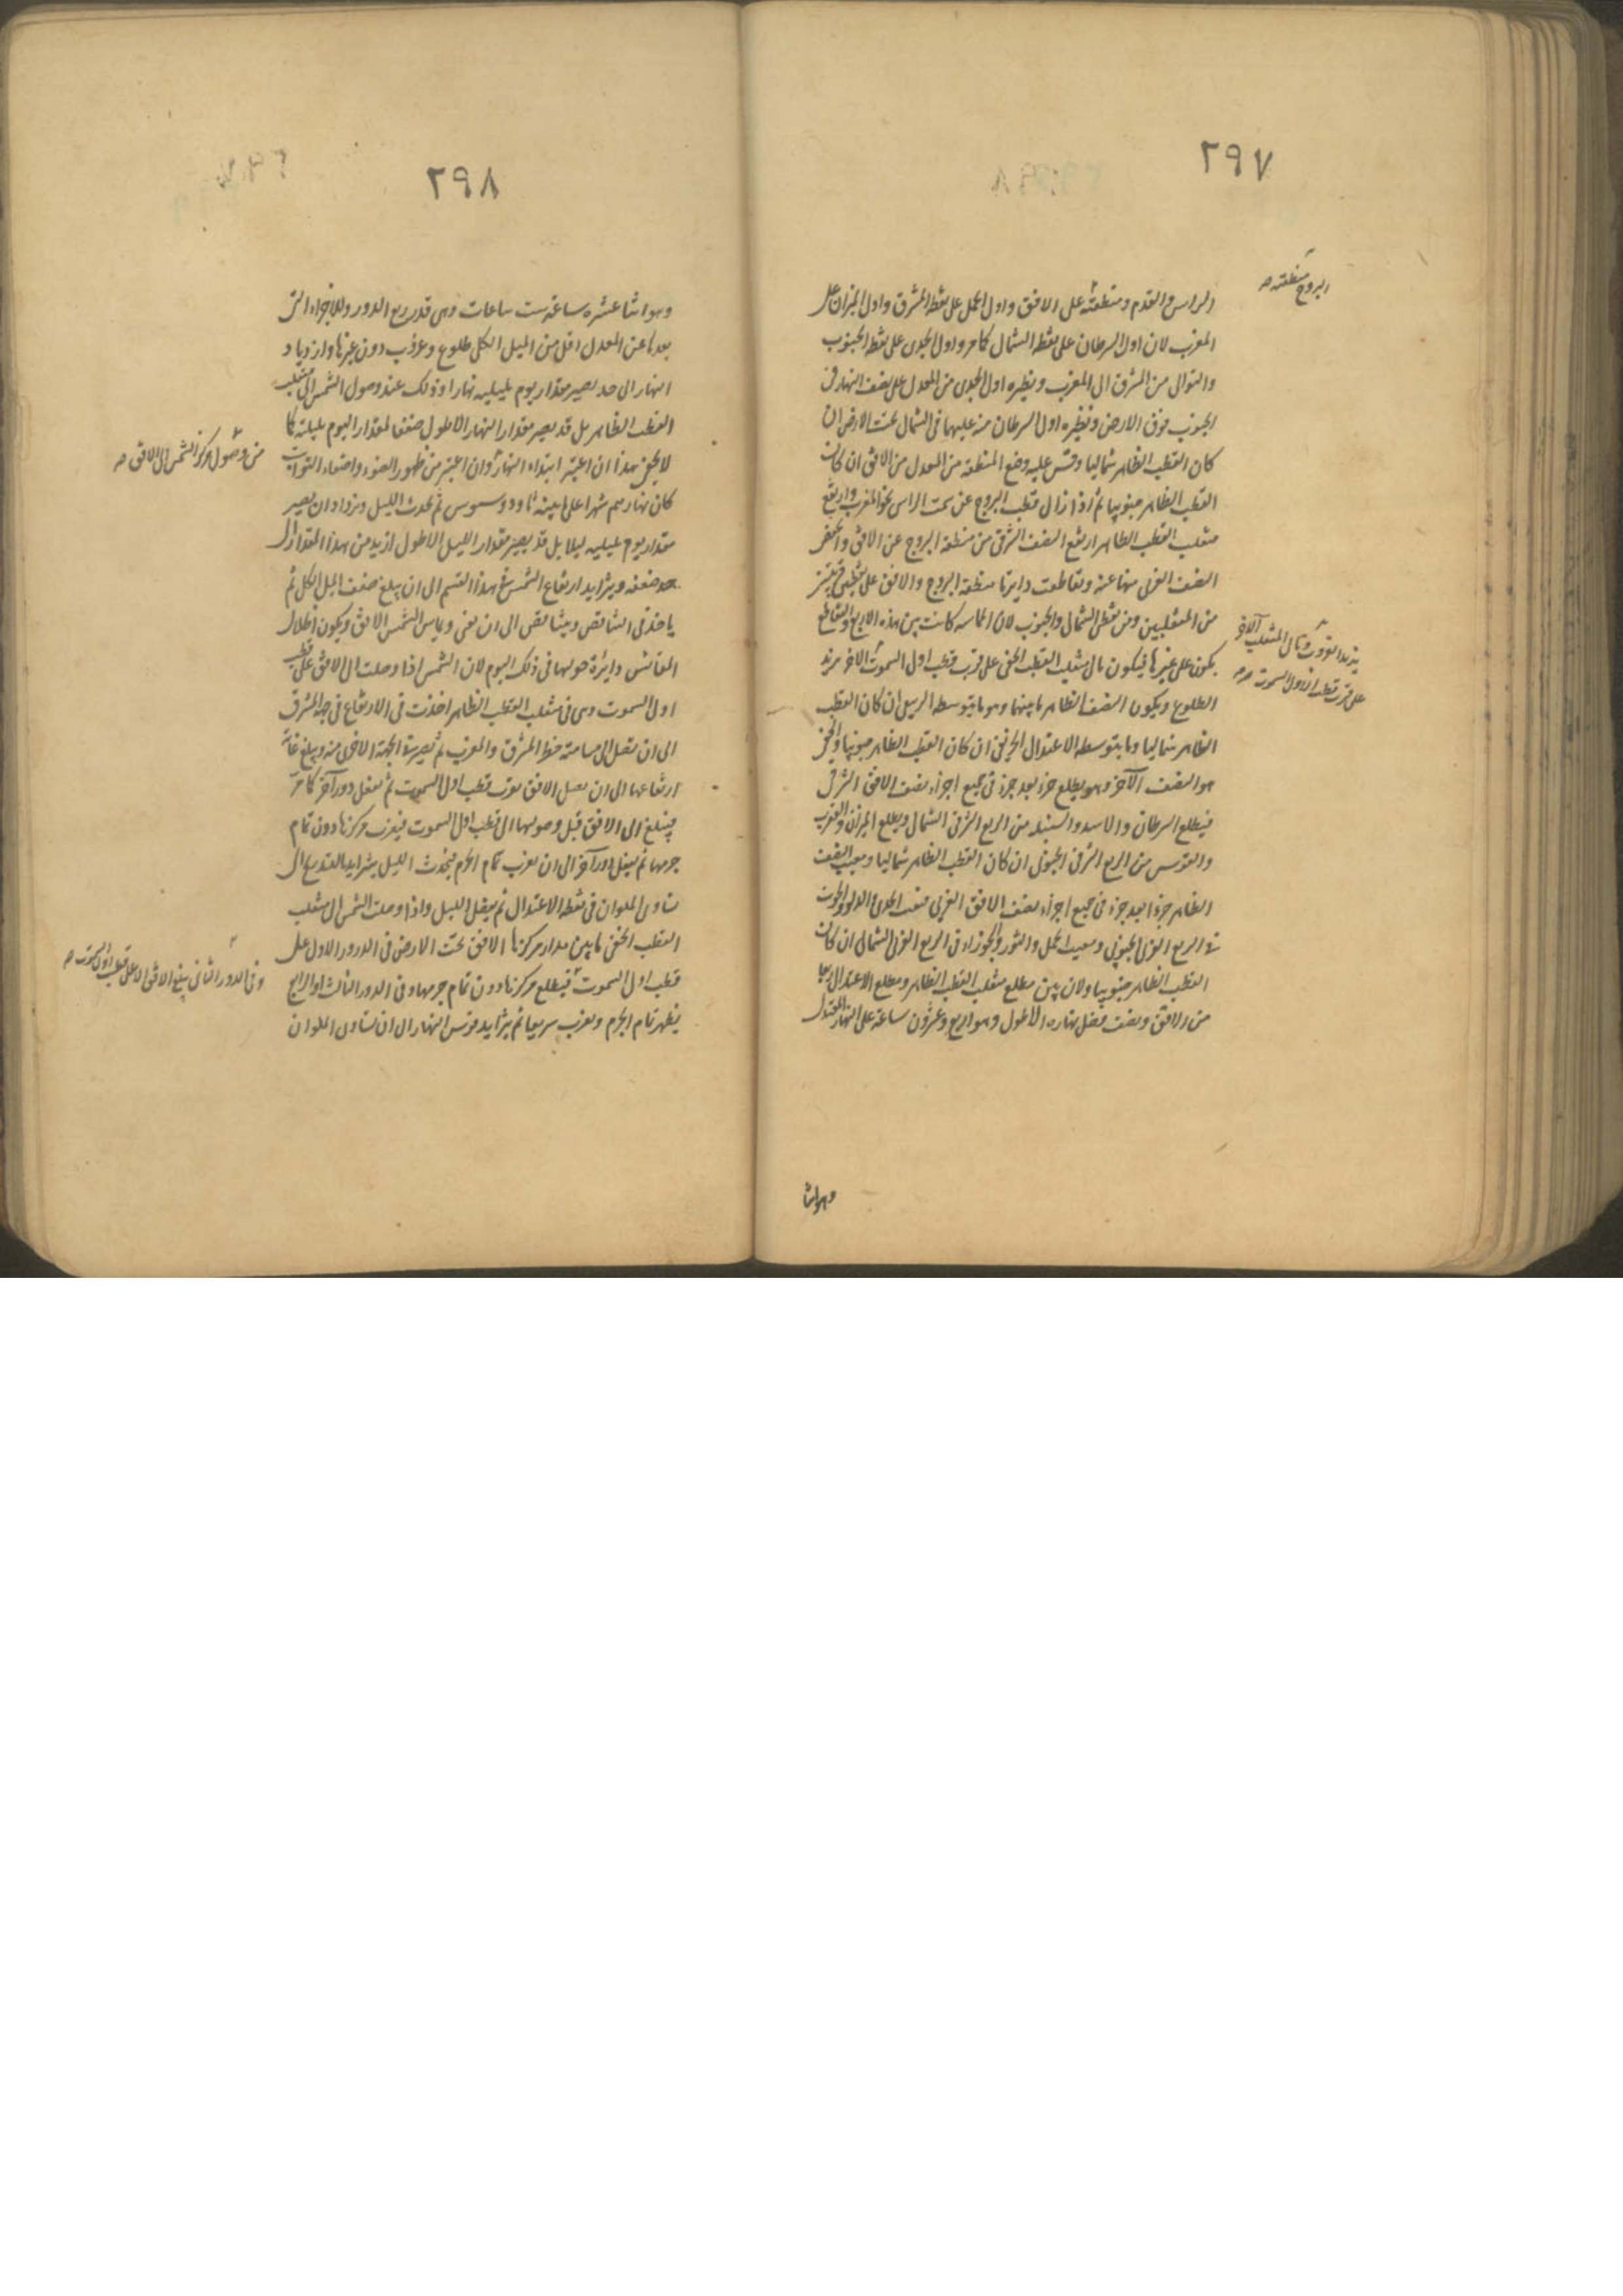 ٢٩٧
البروج منطقته صح
الراس والقدم ومنطقته على الافق واول الحمل على نقطة المشرق واول الميزان على
المغرب لان اول السرطان على نقطة الشمال كما مر واول الجدى على نقطة الجنوب
والتوالى من المشرق الى المغرب ونظيره اول الجدى من المعدل على نصف النهار فى
الجنوب فوق الارض ونظيره اول السرطان منه عليهما فى الشمال تحت الارض ان
كان القطب الظاهر شماليا وقس عليه وضع المنطقة من المعدل من الافق ان كان
القطب الظاهر جنوبيا ثم اذا زال قطب البروج عن سمت الراس نحو المغرب وارتفع
منقلب القطب الظاهر ارتفع النصف الشرقى من منطقة البروج عن الافق وانخفض
النصف الغربى منها عنه وتقاطعت دايرتا منطقة البروج والافق على نقطتى
من المنقلبين ومن نقطتى الشمال والجنوب لان المماسه كانت بين هذه الاربع والتقاطع
يكون على غيرها فيكون مالى منقلب القطب الخفى على قرب قطب اول السموت الاخر يريد
الطلوع ويكون النصف الظاهر ما بينهما وهو ما يتوسطه الربيعى ان كان القطب
الظاهر شماليا وما يتوسطه الاعتدال الخريفى ان كان القطب الظاهر جنوبيا والخفى
هو النصف الآخر وهو يطلع جزء بعد جزء فى جميع اجزاء نصف الافق الشرقى
فيطلع السرطان والاسد والسنبله من الربع الشرقى الشمالى ويطلع الميزان والعقرب
والقوس من الربع الشرقى الجنوبى ان كان القطب الظاهر شماليا ومغيب النصف
الظاهر جزءا بعد جزء فى جميع اجزاء نصف الافق الغربى فمغيب الجدى والدلو والحوت
فى الربع الغربى الجنوبى ومغيب الحمل والثور والجوزاء فى الربع الغربى الشمالى ان كان
القطب الظاهر جنوبيا ولان بين مطلع منقلب القطب الظاهر ومطلع الاعتدال ربعا
من الافق ونصف فضل نهاره الاطول وهو اربع وعشرون ساعة على النهار المعتدل
على قرب قطب اول السموت صح
وهو اثنا
٢٩٨
وهو اثنا عشرة ساعة ست ساعات وهى قدر ربع الدور وللاجزاء التى
بعدها عن المعدل اقل من الميل الكلى طلوع وغروب دون غيرها وازدياد
النهار الى حد يصير مقدار يوم بليليه نهارا وذلك عند وصول الشمس الى منقلب
القطب الظاهر بل قد يصير مقدار النهار الاطول ضعفا لمقدار اليوم بليلته كما
لا يخفى هذا ان اعتبر ابتداء النهار وان اعتبر من ظهور الضوء واختفاء الثوابت
من وصول مركز الشمس الى الافق صح
كان نهارهم شهرا على ما بينه ثاودوسيوس ثم يحدث الليل ويزداد ان يصير
مقدار يوم بليليه ليلا بل قد يصير مقدار الليل الاطول ازيد من هذا المقدار الى
حد ضعفه ويتزايد ارتفاع الشمس فى هذا القسم الى ان يبلغ ضعف الميل الكلى ثم
ياخذ فى التناقص ويتناقص الى ان يفنى ويماس الشمس الافق ويكون اظلال
المقائيس دايرة حولها فى ذلك اليوم لان الشمس اذا وصلت الى الافق على قطب
اول السموت وهى فى منقلب القطب الظاهر اخذت فى الارتفاع فى جهة المشرق
الى ان تصل الى مسامتة خط المشرق والمغرب ثم تصير فى الجهة الاخرى منه ويبلغ غاية
ارتفاعها الى ان تصل الافق بقرب قطب اول السموت ثم تفعل دورا آخر كما مر
فيبلغ الى الافق قبل وصولها الى قطب اول السموت فيغرب مركزها دون تمام
جرمها ثم يفعل دورا آخر الى ان يغرب تمام الجرم فيحدث الليل يتزايد بالتدريج الى
تساوى الملوان فى نقطة الاعتدال ثم يفضل الليل واذا وصلت الشمس الى منقلب
القطب الخفى ماس مدار مركزها الافق تحت الارض فى الدور الاول على
قطب اول السموت فيطلع مركزها دون تمام جرمها وفى الدور الثالث او الرابع
وفى الدور الثانى يبلغ الافق الا على قطب اول السموت صح
يظهر تمام الجرم ويغرب سريعا ثم يتزايد قوس النهار الى ان تساوى الملوان